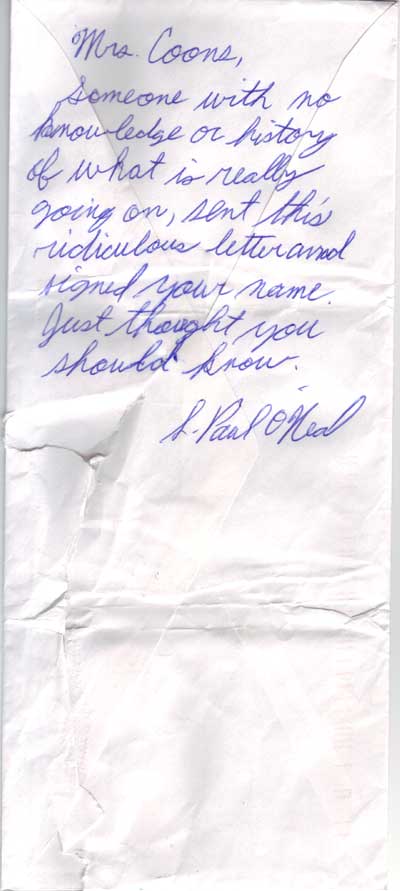 Mrs. Coons,
Someone with no
knowledge or history
of what is really
going on, sent this
ridiculous letter and
signed your name.
Just thought you
should know.
L. Paul O'Neal